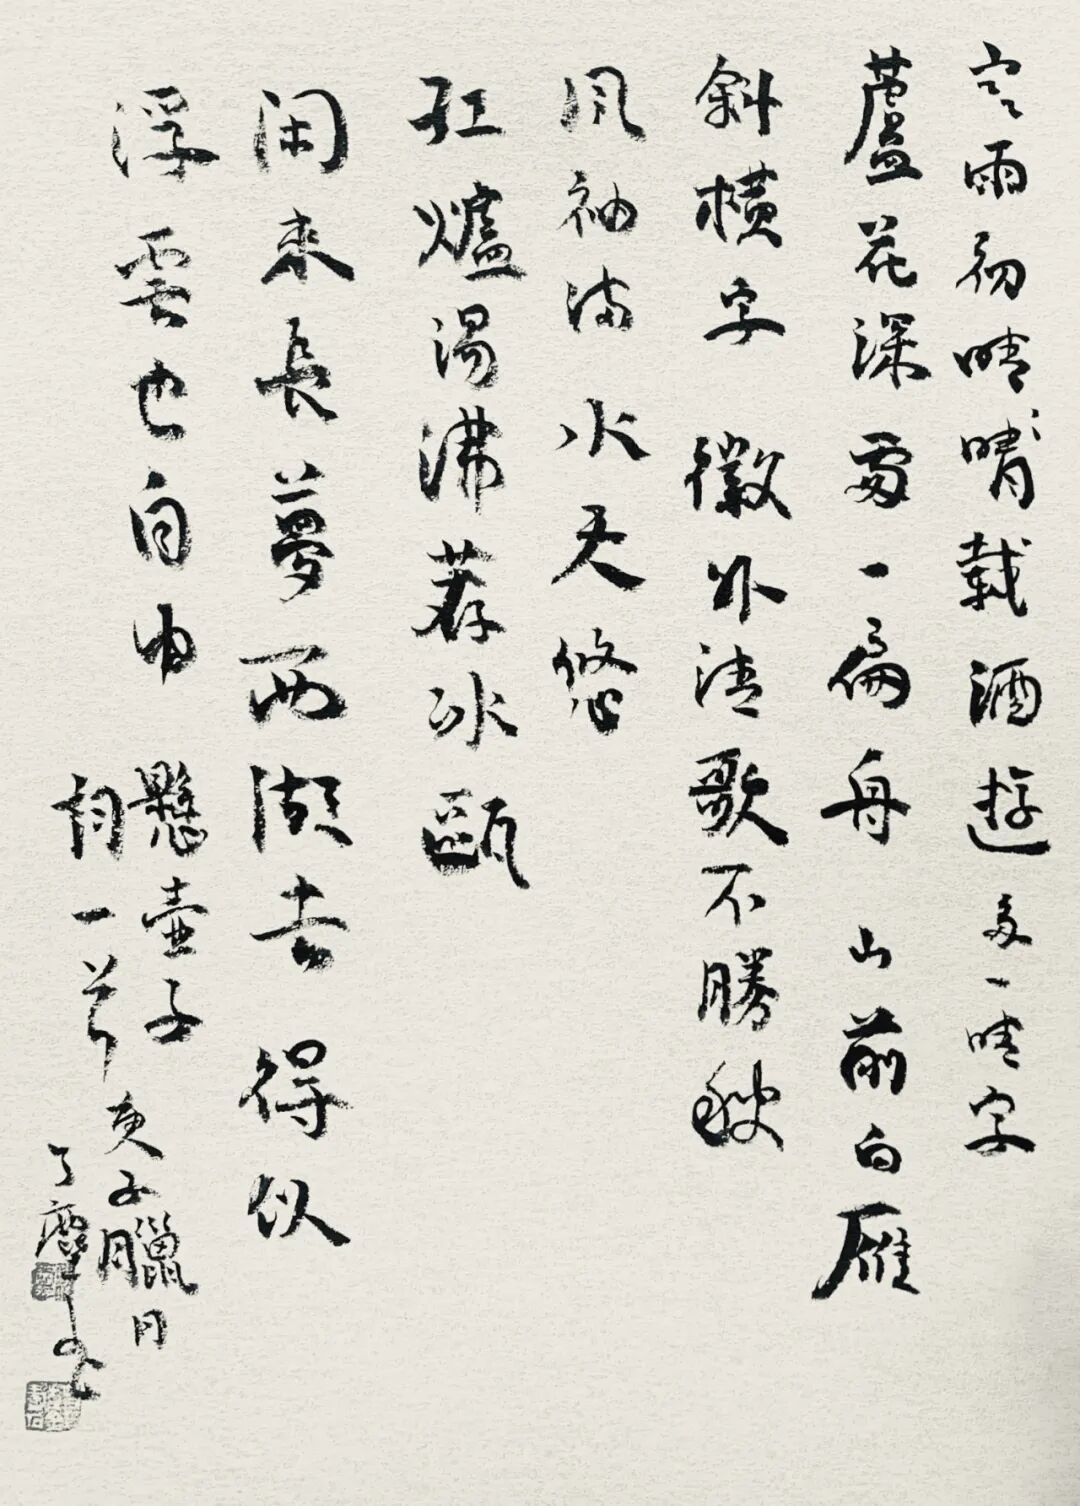 寒雨初晴晴載酒遊多一晴字
蘆花深處一扁舟山前白雁
斜橫字徽外清歌不勝秋
風袖滿水天悠
紅爐湯沸荐冰甌
閑來長夢西湖去得似
浮雲也自由
懸壺子
詞一首庚子臘月
了塵